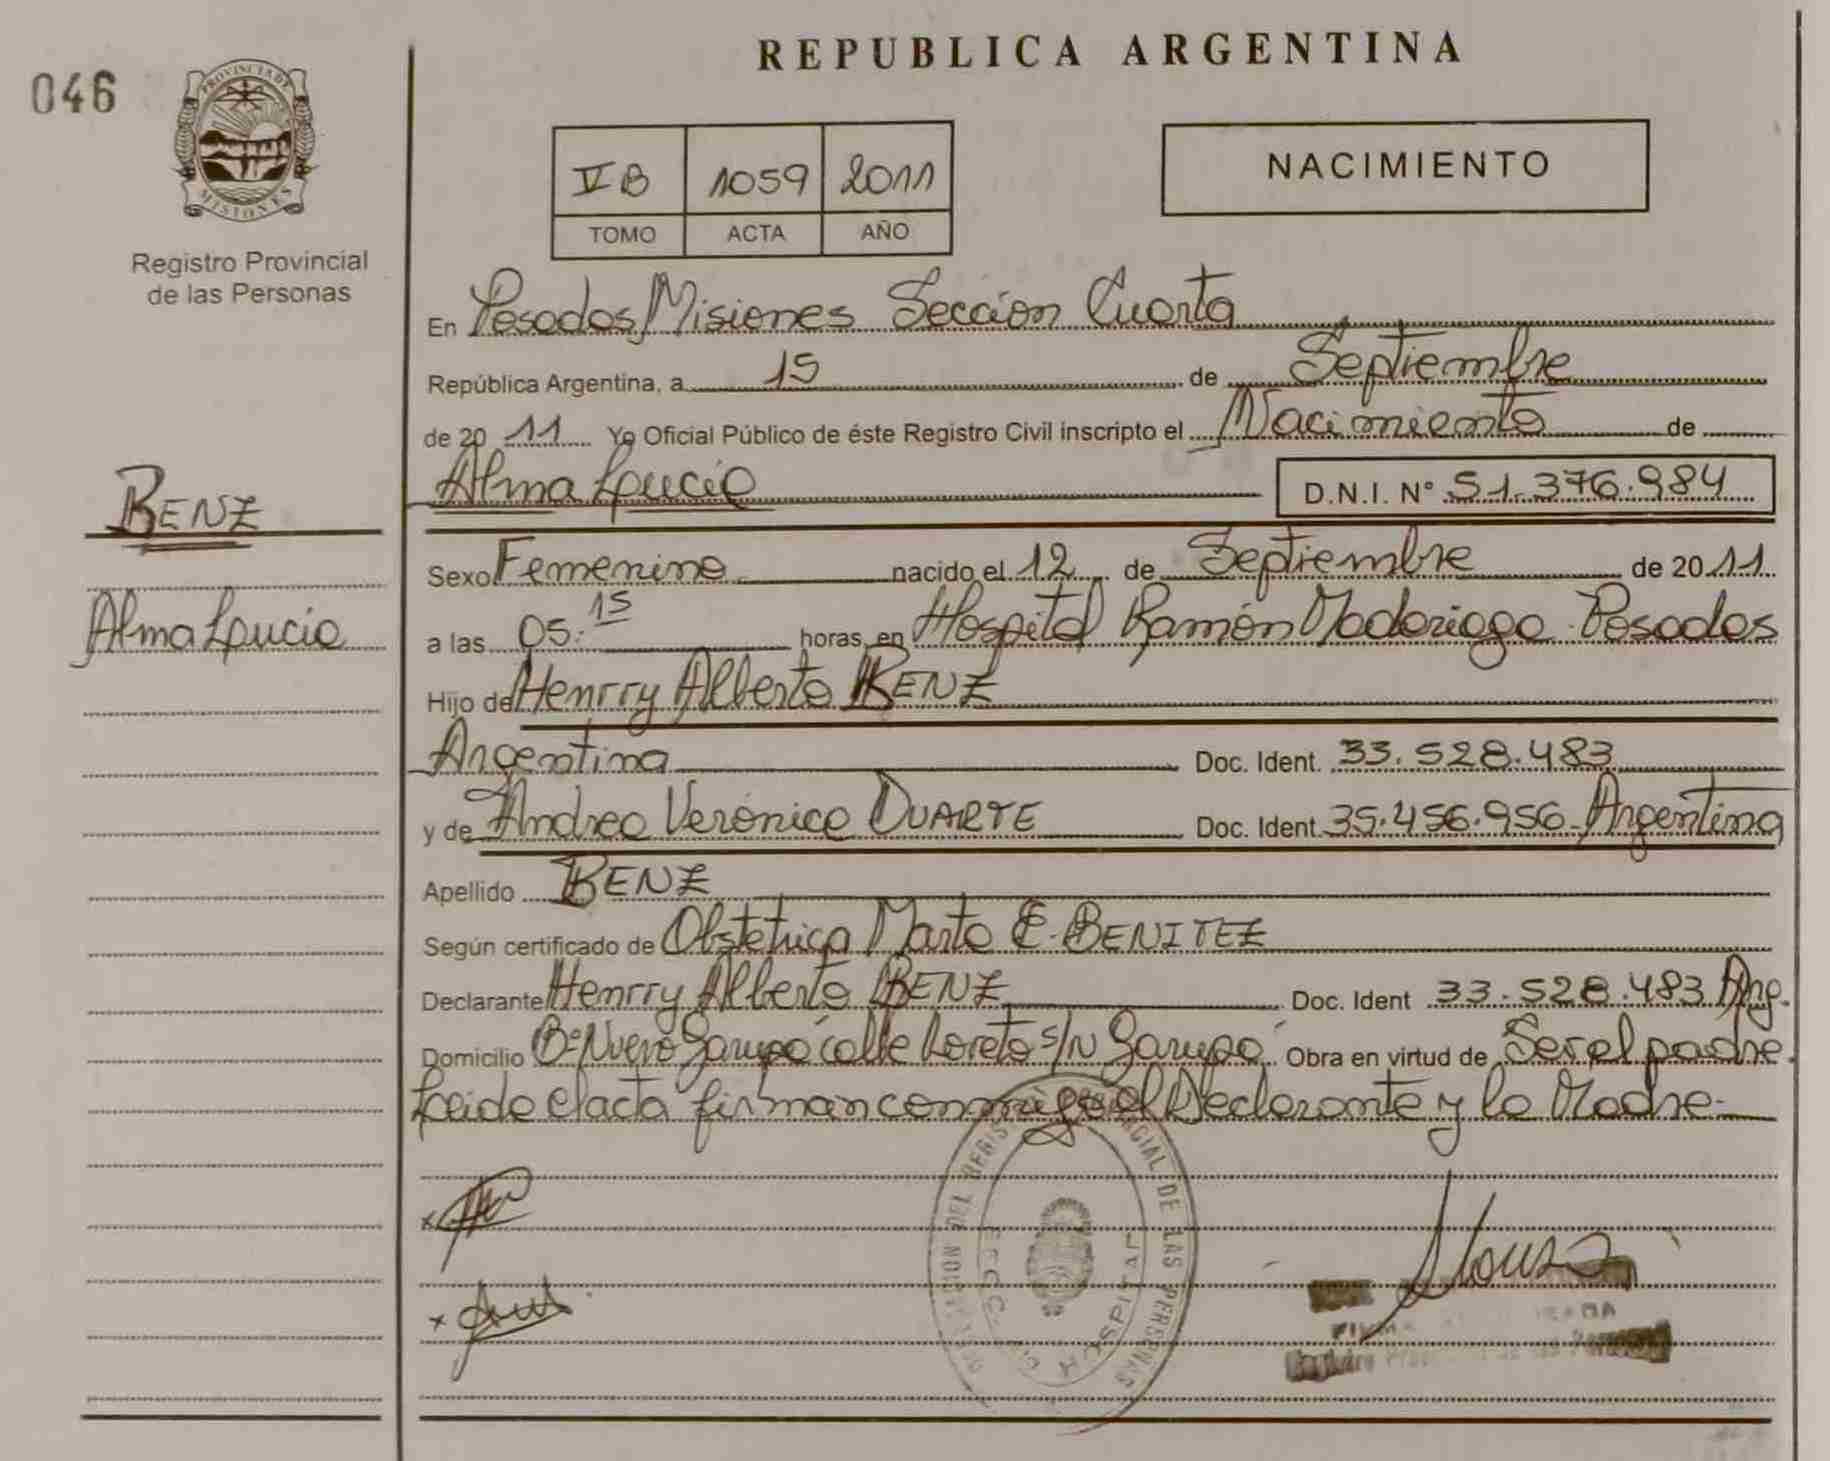 REPUBLICA ARGENTINA
046
PROVINCIA DE
MISIONES
Registro Provincial
de las Personas
V B 1059 2011
TOMO ACTA AÑO
NACIMIENTO
En Posadas Misiones Sección Cuarta
República Argentina, a 15 de Septiembre
de 2011 Yo Oficial Público de éste Registro Civil inscripto el Nacimiento de
Alma Lucía D.N.I. N° 51.376.984
BENZ
Alma Lucía
Sexo Femenino nacido el 12 de Septiembre de 2011
a las 05:15 horas, en Hospital Ramón Madariaga Posadas
Hijo de Henrry Alberto BENZ
Argentina Doc. Ident. 33.528.483
y de Andrea Verónica DUARTE Doc. Ident. 35.456.956 Argentina
Apellido BENZ
Según certificado de Obstetrica Marta E. BENITEZ
Declarante Henrry Alberto BENZ Doc. Ident 33.528.483 Arg.
Domicilio B° Nuevo Garupá calle Loreto s/N Garupá Obra en virtud de Ser el padre.
Leida el acta firman conmigo el Declarante y la Madre-
DEL REGISTRO PROVINCIAL DE LAS PERSONAS
HOSPITAL